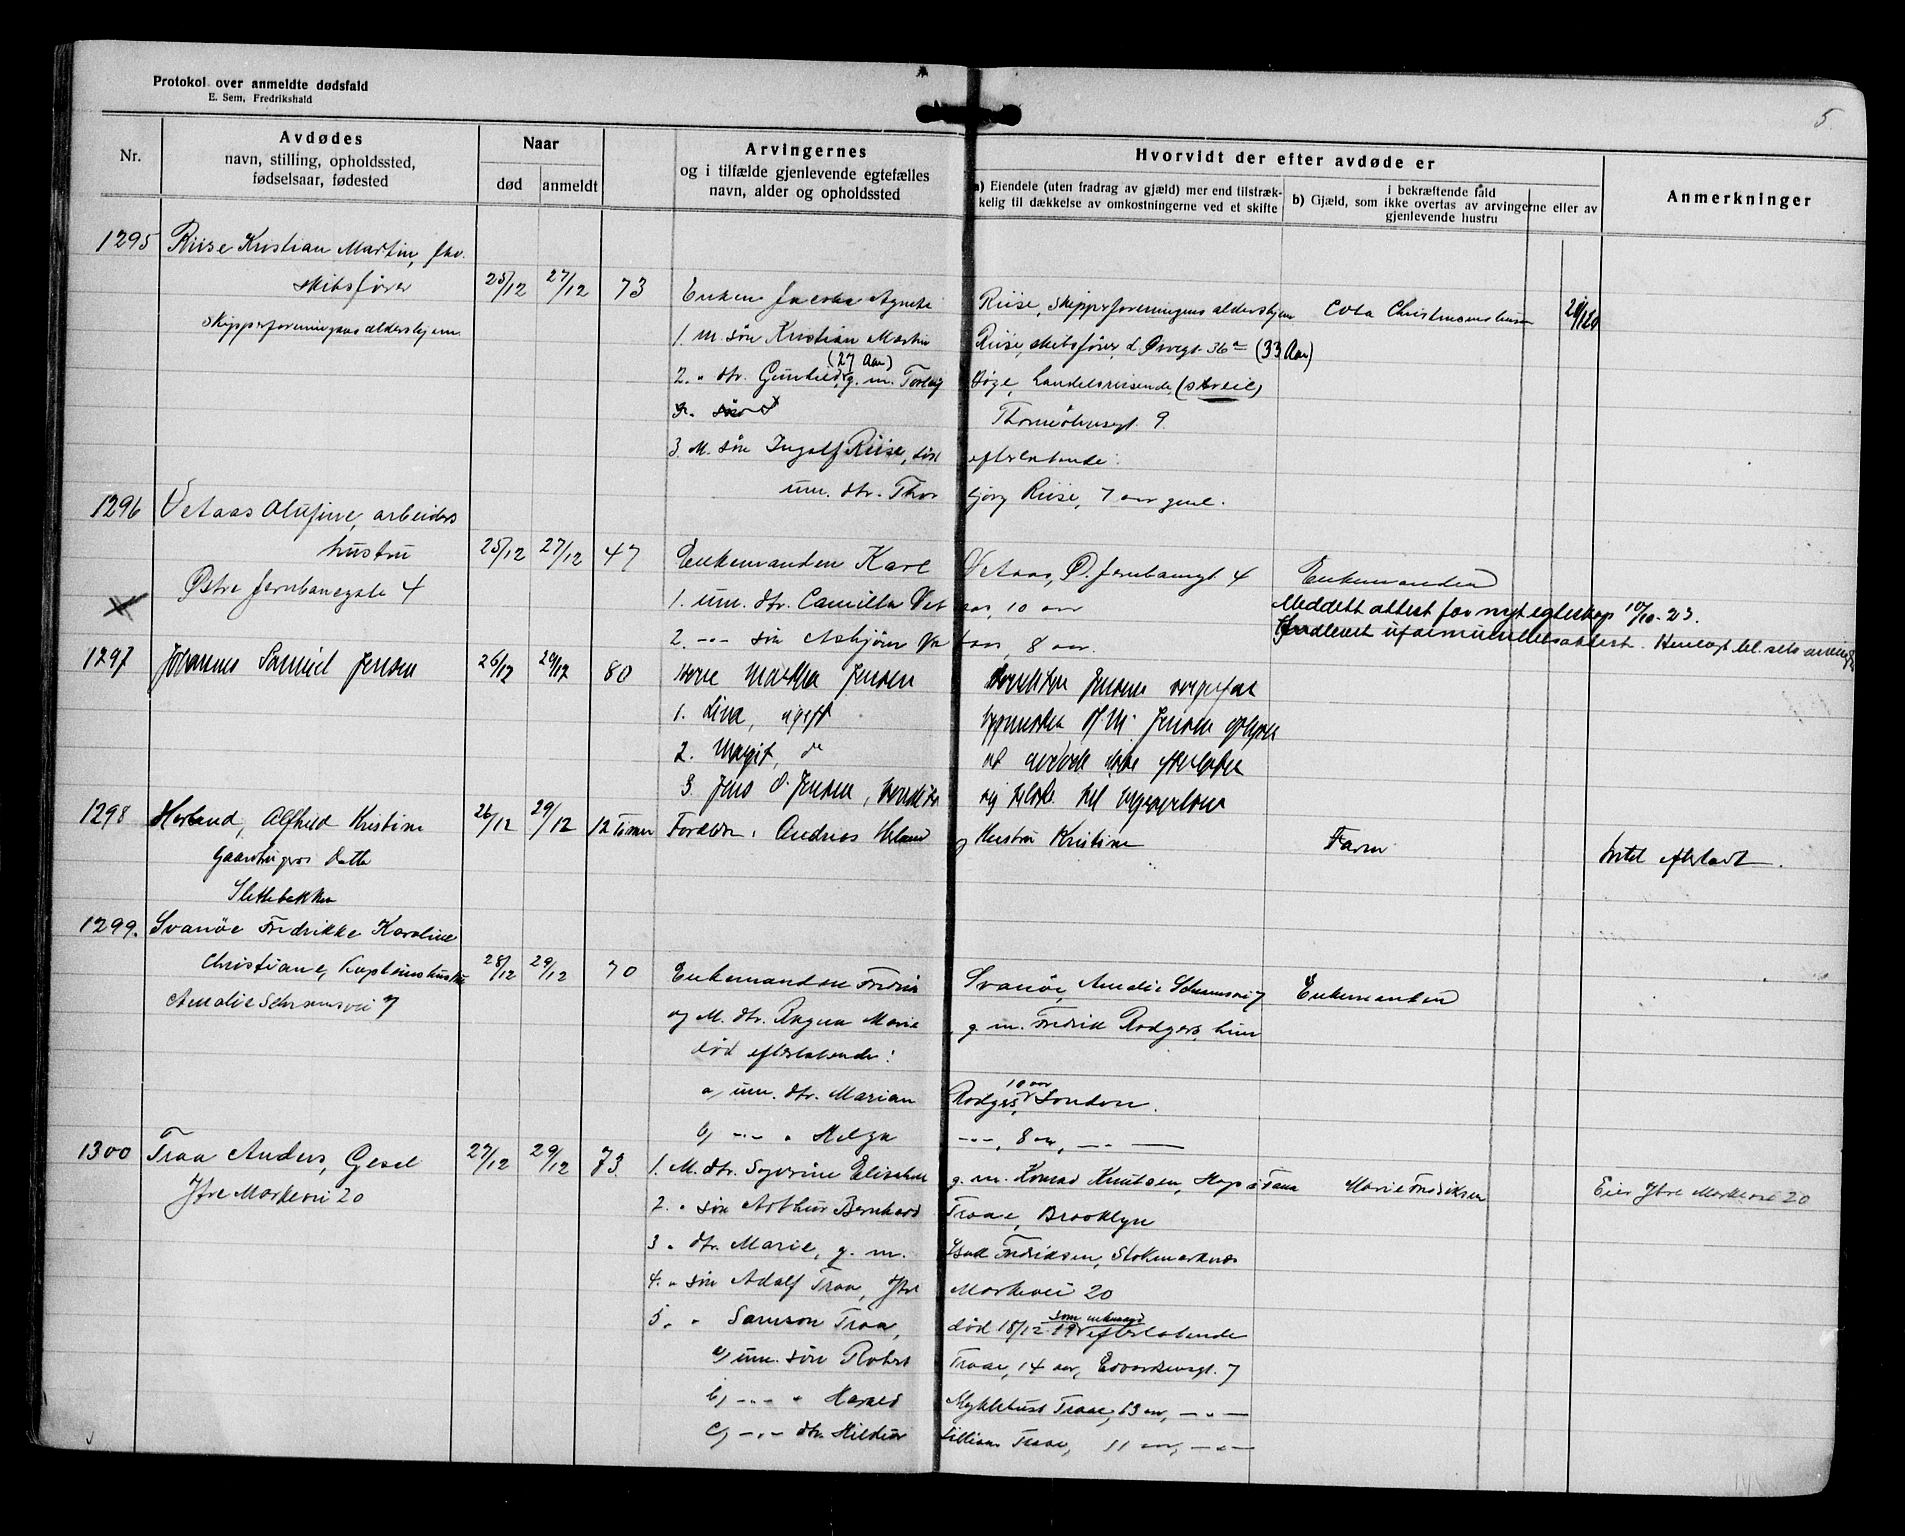 Protokol over anmeldte dødsfald
E. Sem, Fredrikshald
5
Nr.
Avdødes
navn, stilling, opholdssted,
fødselsaar, fødested
Naar
død
anmeldt
Arvingernes
og i tilfælde gjenlevende egtefælles
navn, alder og opholdssted
Hvorvidt der efter avdøde er
a) Eiendele (uten fradrag av gjæld) mer end tilstræk-
kelig til dækkelse av omkostningerne ved et skifte
b) Gjæld, som i bekræftende fald
ikke overtas av arvingerne eller av
gjenlevende hustru
Anmerkninger
1295 Riise Kristian Martin, fhv.
skibsfører 25/12 27/12 73 Enken Jacoba Agnete Riise, Skipperforeningens aldershjem
Skipperforeningens aldershjem
1. M. søn Kristian Martin Riise, skibsfører, d. Øvregt. 36a (33 Aar)
2. " dtr. Gunhild, (27 Aar) g. m. Torleif Høge, handelsreisende,
Thormøhlensgt. 9
3. M. søn Ingolf Riise, død efterlatende:
um. dtr. Thorbjørg Riise, 7 aar gml.
1296 Vetaas Olufine, arbeiders
hustru 25/12 27/12 47 Enkemanden Karl Vetaas, Ø. Jernbanegt. 4 Enkemanden
Østre Jernbanegate 4
1. um. dtr. Camilla Vetaas, 10 aar Meddelt attest for nyt egteskap 10/10-23.
2. -"- søn Asbjørn Vetaas, 8 aar.
1297 Johannes Samuel Jensen 26/12 29/12 80 Martha Jensen
1. Lina, ugift
2. Margit, do
3. Jens O. Jensen,
1298 Herland, Alfhild Kristine 26/12 29/12 12 Timer Foreldre: Andreas Herland og Hustru Kristine Farm Intet efterladt.
Gaardbrugers Datter
Slettebakken
1299. Svanøe Fredrikke Karoline
Christiane, Kapteinshustru 28/12 29/12 70 Enkemanden Fredrik Svanøe, Amalie Schramsvei 7 Enkemanden
Amalie Schramsvei 7
og M. dtr. Ragna Marie g. m. Fredrik Rodgers, hun
død efterlatende:
a, um. dtr. Marian Rodgers, 10 aar London.
b, -"- " Helga -"-, 8 aar, -"-
1300 Traa Anders, Gesel 27/12 29/12 73. 1. M. dtr. Severine Elisabeth g. m. Konrad Knutsen, Hop i Fana Marie Fredriksen Eier Ytre Markevei 20
Ytre Markevei 20
2. " søn Arthur Bernhard Traae, Brooklyn
3. " dtr. Marie, g. m. Fredriksen, Stokmarknes
4. " søn Adolf Traa, Ytre Markevei 20
5. " " Samson Traa, død 18/12 19 som enkemand efterlatende
a, um. søn Robert Traae, 14 aar, Edvardsensgt. 7
b, -"- " Harald Myklebust Traae, 13 aar, -"-
c, -"- dtr. Hildur Lillian Traae, 11 aar, -"-